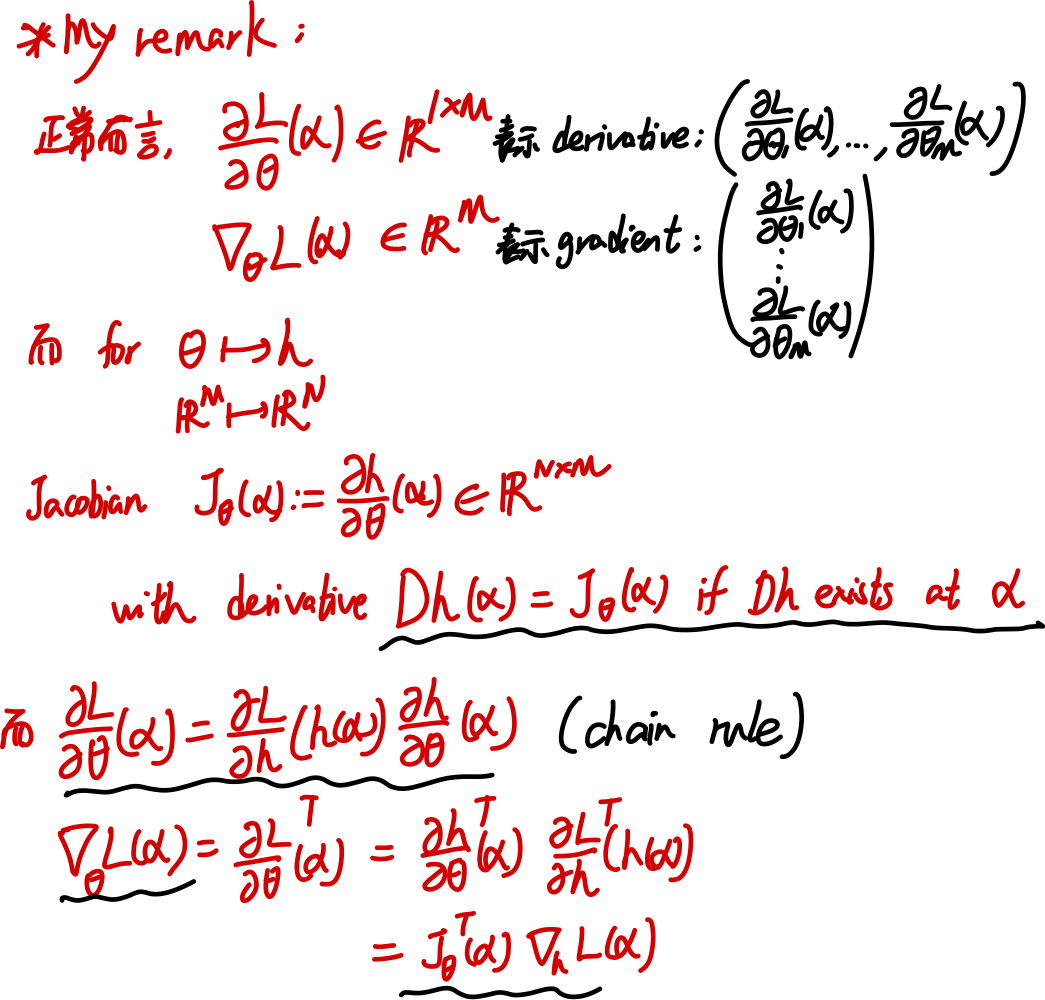 *My remark:
正常而言, ∂L/∂θ(α) ∈ ℝ^{1×M} 表示 derivative: (∂L/∂θ₁(α), ..., ∂L/∂θ_M(α))
∇_θ L(α) ∈ ℝ^M 表示 gradient: (∂L/∂θ₁(α) ⋮ ∂L/∂θ_M(α))
而 for θ ↦ h
ℝ^M ↦ ℝ^N
Jacobian J_θ(α) := ∂h/∂θ(α) ∈ ℝ^{N×M}
with derivative Dh(α) = J_θ(α) if Dh exists at α
而 ∂L/∂θ(α) = ∂L/∂h(h(α)) ∂h/∂θ(α) (chain rule)
∇_θ L(α) = ∂L/∂θ^T(α) = ∂h/∂θ^T(α) ∂L/∂h^T(h(α))
= J_θ^T(α) ∇_h L(α)